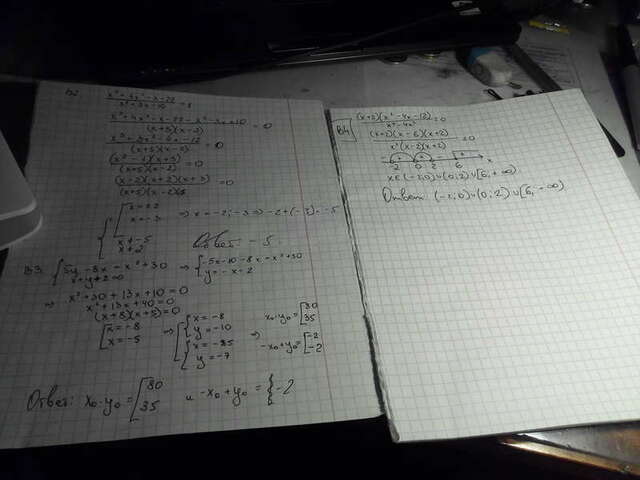 B2
(x³+4x²-x-22)/(x²+3x-10) = 1
(x³+4x²-x-22-x²-3x+10)/((x+5)(x-2)) = 0
(x³+3x²-4x-12)/((x+5)(x-2)) = 0
(x²-4)(x+3)/((x+5)(x-2)) = 0
(x-2)(x+2)(x+3)/((x+5)(x-2)) = 0
x=±2
x=-3
⇒ x=-2;-3 ⇒ -2+(-3)=-5
x≠-5
x≠2
Ответ -5.
B3. { 5y-8x=x²+30
x+y+2=0
⇒ { -5x-10-8x=x²+30
y=-x-2
⇒ x²+30+13x+10=0
x²+13x+40=0
(x+8)(x+5)=0
[ x=-8
x=-5
⇒ { x=-8
y=-10
{ x=-85
y=-7
⇒ x₀·y₀=[ 80
35
-x₀+y₀=[ -2
-2
Ответ: x₀·y₀=[ 80
35
и -x₀+y₀={ -2
B4
(x+2)(x²-4x-12)/(x⁴-4x²) ≥0
(x+2)(x-6)(x+2)/(x²(x-2)(x+2)) ≥0
-2 0 2 6 x
x∈(-2;0)∪(0;2)∪[6;+∞)
Ответ: (-2;0)∪(0;2)∪[6;+∞)